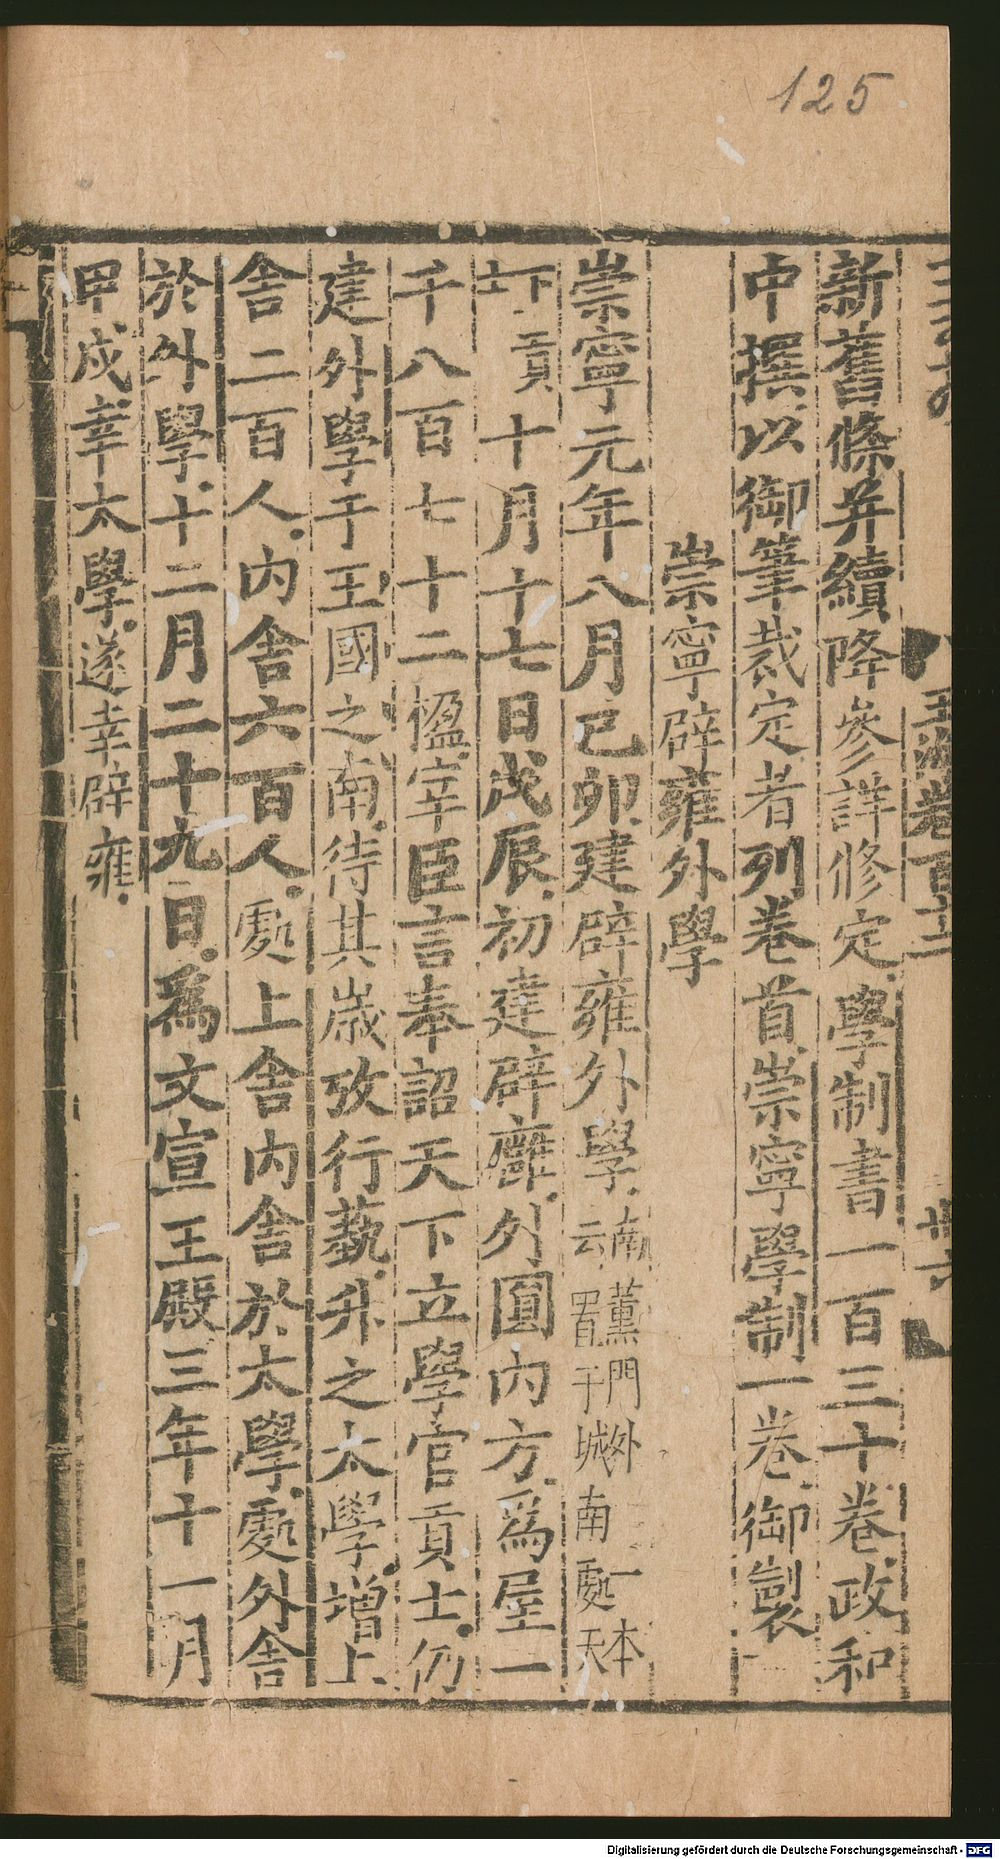 125
新舊條并續降參詳修定學制書一百三十卷政和
中撰以御筆裁定者列卷首崇寧學制一卷御製
崇寧辟雍外學
崇寧元年八月己卯建辟雍外學南薰門外一本
云置于城南處天
下貢十月十七日戊辰初建辟廱外圓内方為屋一
千八百七十二楹宰臣言奉詔天下立學官貢士仍
建外學于王國之南待其歲攷行藝升之太學增上
舍二百人内舍六百人處上舍内舍於太學處外舍
於外學十二月二十九日為文宣王殿三年十一月
甲戌幸太學遂幸辟雍
Digitalisierung gefördert durch die Deutsche Forschungsgemeinschaft - DFG